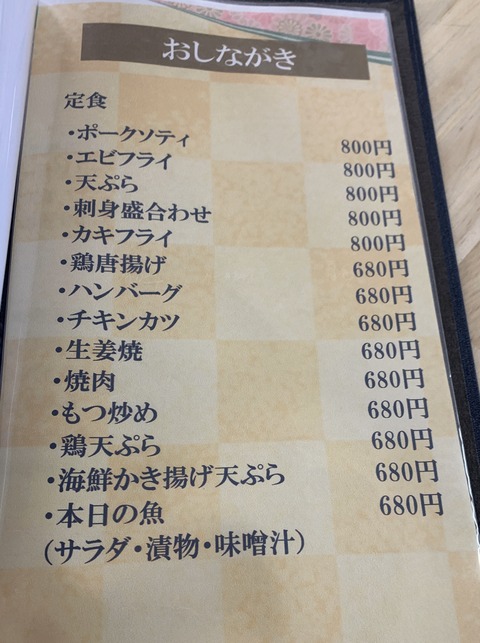 おしながき
定食
・ポークソティ 800円
・エビフライ 800円
・天ぷら 800円
・刺身盛合わせ 800円
・カキフライ 800円
・鶏唐揚げ 680円
・ハンバーグ 680円
・チキンカツ 680円
・生姜焼 680円
・焼肉 680円
・もつ炒め 680円
・鶏天ぷら 680円
・海鮮かき揚げ天ぷら 680円
・本日の魚 680円
(サラダ・漬物・味噌汁)